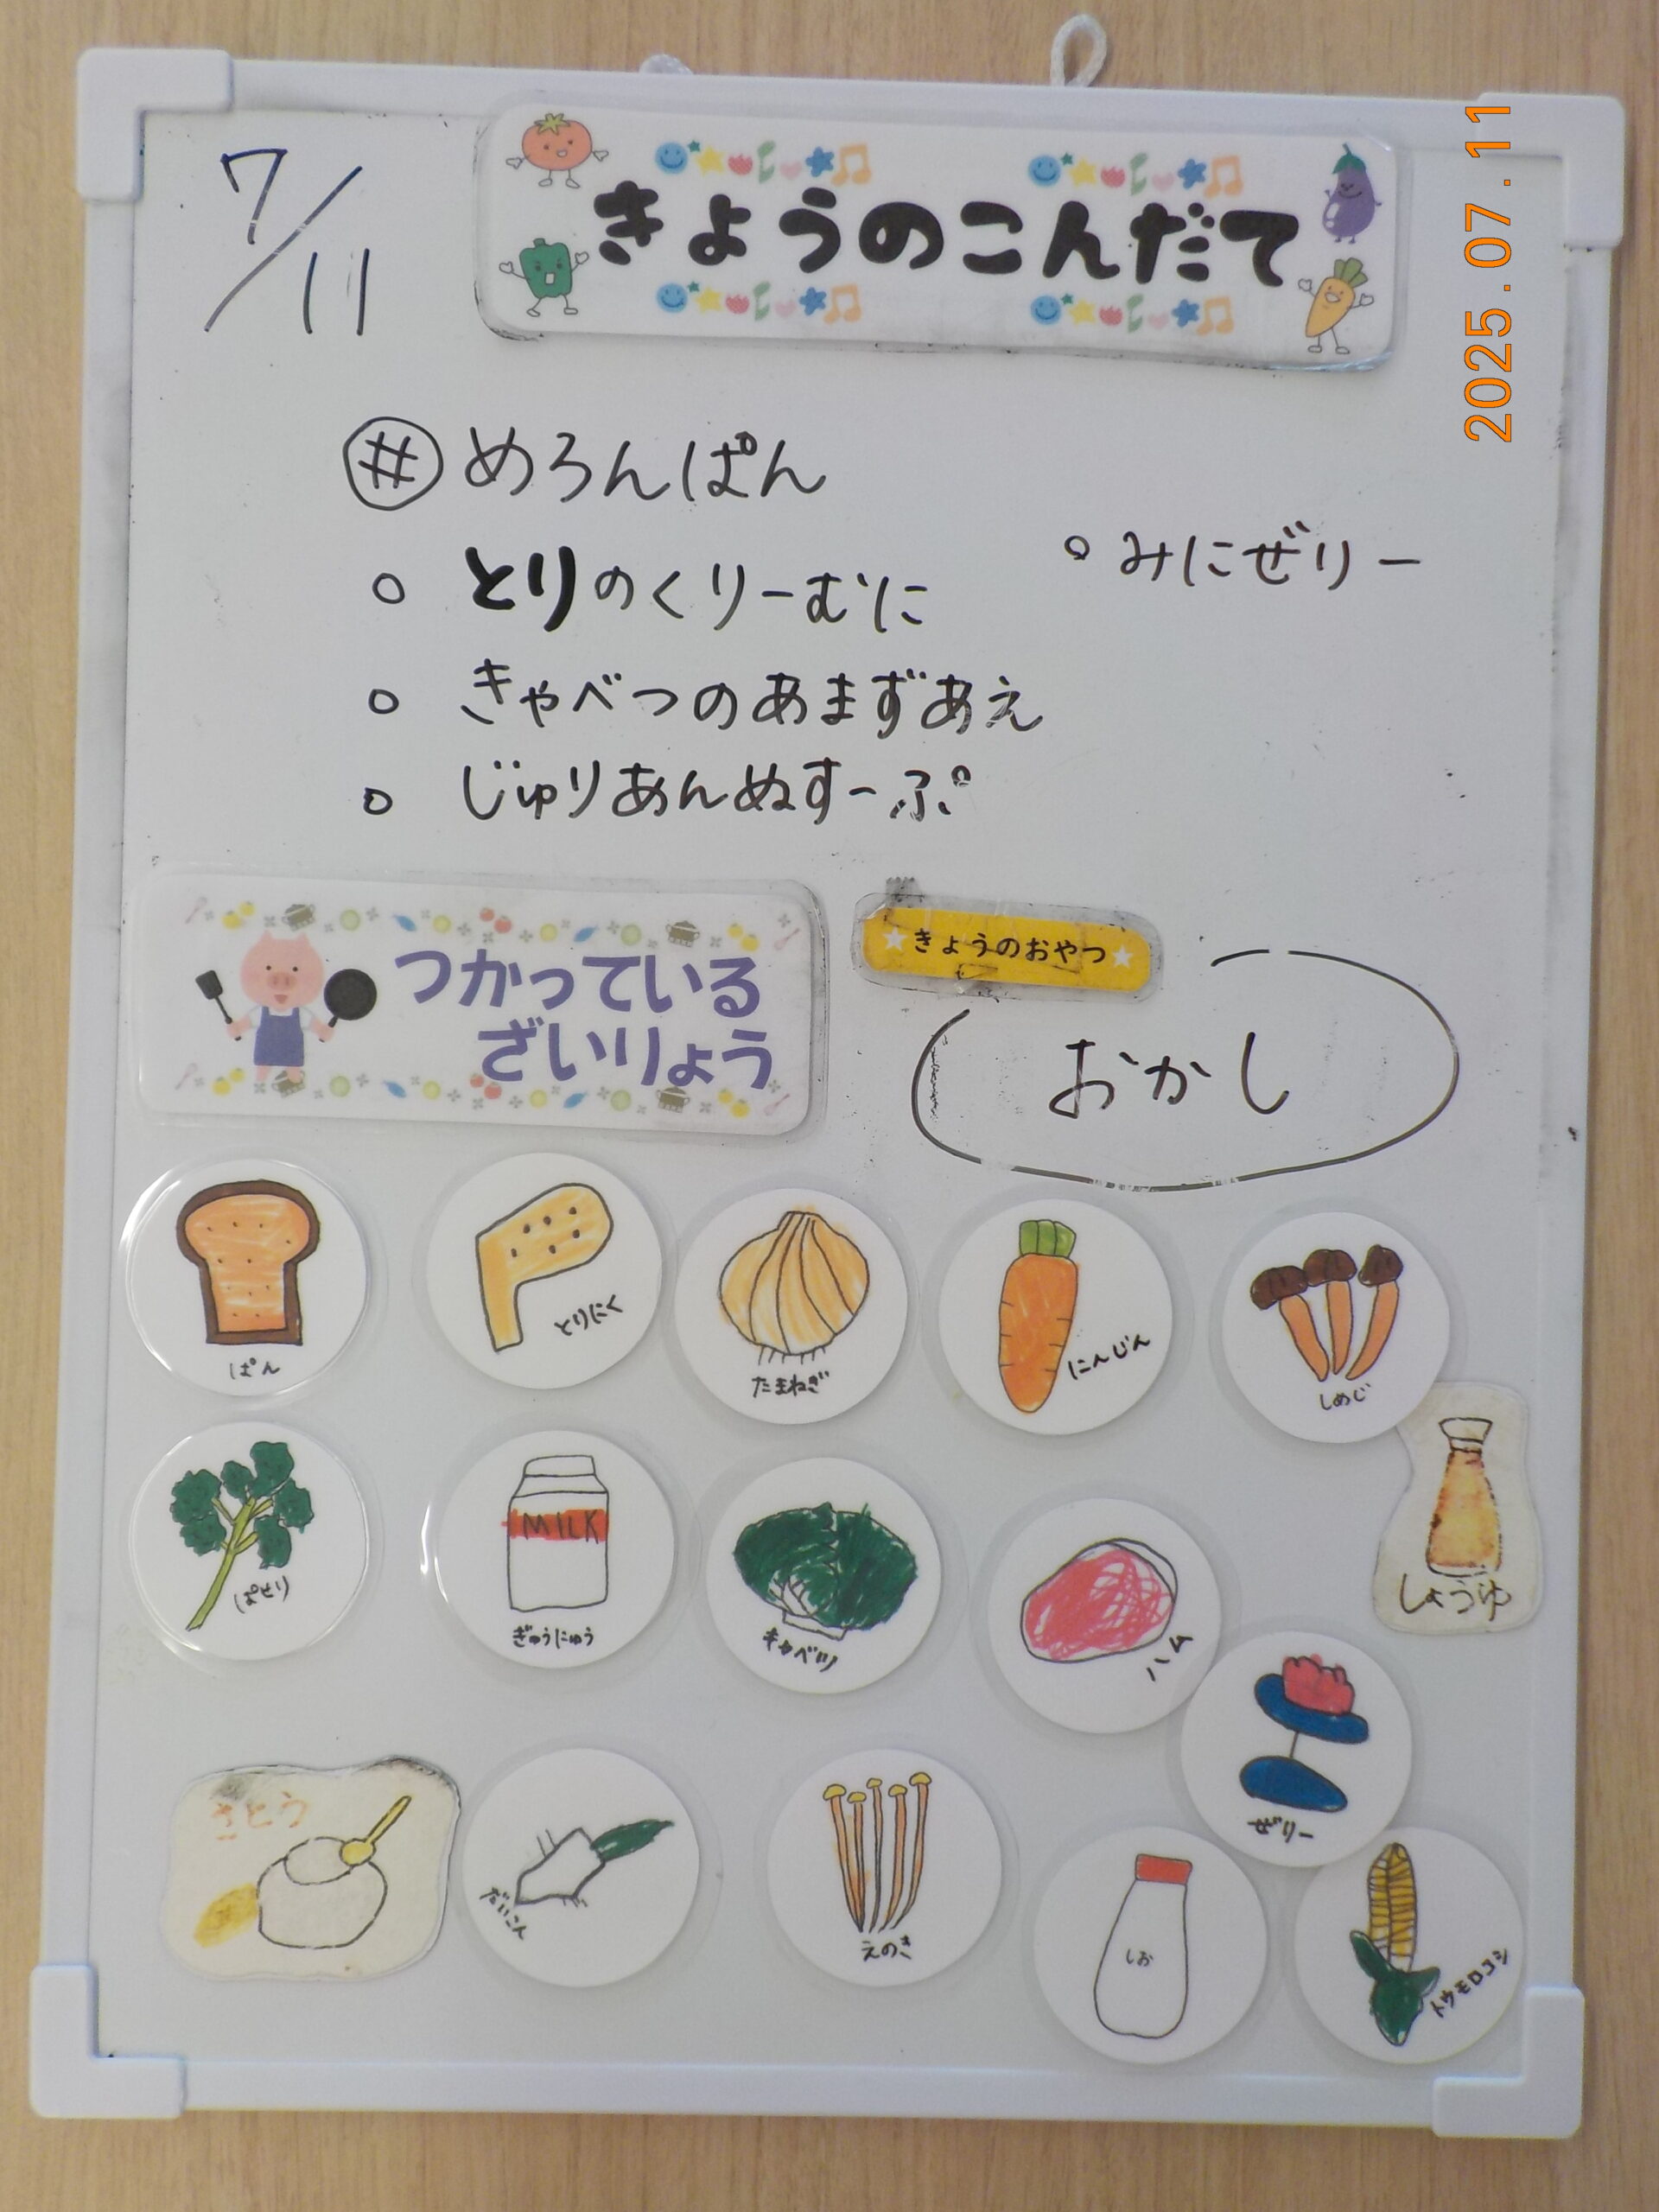 7/11
きょうのこんだて
2025.07.11
# めろんぱん
○ とりのくりーむに
○ みにぜりー
○ きゃべつのあまずあえ
○ じゅりあんぬすーぷ
つかっている
ざいりょう
★きょうのおやつ★
おかし
ぱん
とりにく
たまねぎ
にんじん
しめじ
ぱせり
MILK
ぎゅうにゅう
キャベツ
ハム
しょうゆ
ぜりー
さとう
だいこん
えのき
しお
トウモロコシ